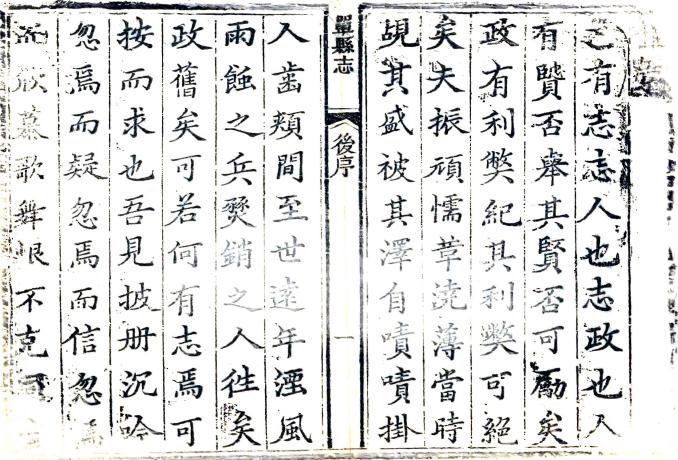 之有志志人也志政也人
有贒否舉其賢否可勵矣
政有利獘紀其利獘可絕
矣夫振頑懦革澆薄當時
覩其盛被其澤自嘖嘖掛
單縣志
後序
一
人齒頰間至世遠年湮風
雨蝕之兵燹銷之人徃矣
政舊矣可若何有志焉可
按而求也吾見披册沉吟
忽焉而疑忽焉而信忽焉
欣慕歌舞恨不克